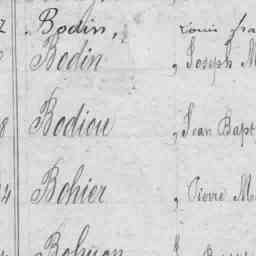 Bodin, Louis
Bodin , Joseph M
8 Bodiou , Jean Bapt
4 Bohier , Pierre M
Bohuon